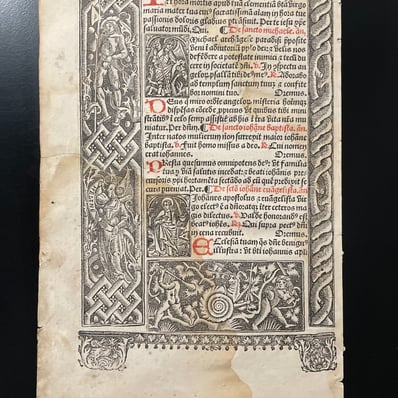 et hora mortis apud tuã clementiã bt̃a virgo
maria mater tua cuiꝰ sacratissimã aĩam in hora tue
passionis doloris gladius ptrãsiuit. Per te iesu xp̃e
saluator mũdi. Qui. ¶ De sancto michaele. añ.
Michael archãgele paradisi p̃posite
veni ĩ adiutoriũ
fẽdere
cere ĩ societatẽ dñi. ℣. In cõspectu an
geloꝝ psallã tibi deꝰ meꝰ. ℟. Adorabo
ad templum sanctum tuum et confite
bor nomini tuo. Oremus.
Deus q̃ miro ordĩe angeloꝝ misteria hoĩmqꝫ
dispẽsas cõcede ꝓpiciꝰ vt quibus tibi mini
strãtibꝰ ĩ celo semp assistit ab his ĩ tr̃a vita nr̃a mu
niatur. Per dñm. ¶ De sancto iohãne baptista. añ.
Inter natos mulierum non surrexit maior iohãne
baptista. ℣. Fuit homo missus a deo. ℟. Cui nomen
erat iohannes. Oremus.
Presta quesumus omnipotens deꝰ: vt familia
tua ꝑ viã salutis incedat: ⁊ beati iohãnis pre
cursoris ꝑ hortamẽta sectãdo ad eũ quẽ predixit se
cura ꝑueniat. Per. ¶ De sctõ iohãne euãgelista. añ
Iohannes apostolus ⁊ euãgelista vir
go elect’ ẽ a dño: atqꝫ ĩter ceteros ma
gis dilectus. ℣. Valde honorãdꝰ ẽ
ioh’es. ℟. Qui supra pectꝰ dñi
in cena recubuit. Oremus.
Ecclesiã tuam q̃s dñe benignꝰ
illustra: vt bt̃i iohannis apli